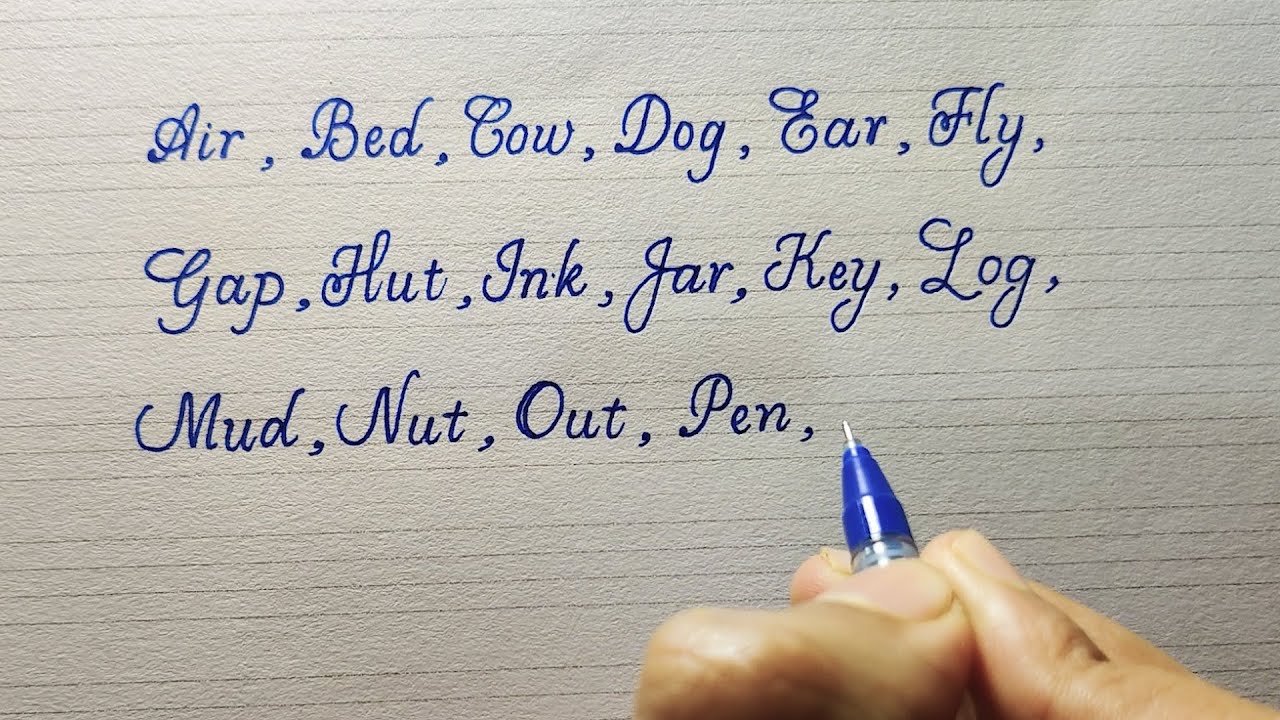 Air, Bed, Cow, Dog, Ear, Fly,
Gap, Hut, Ink, Jar, Key, Log,
Mud, Nut, Out, Pen,